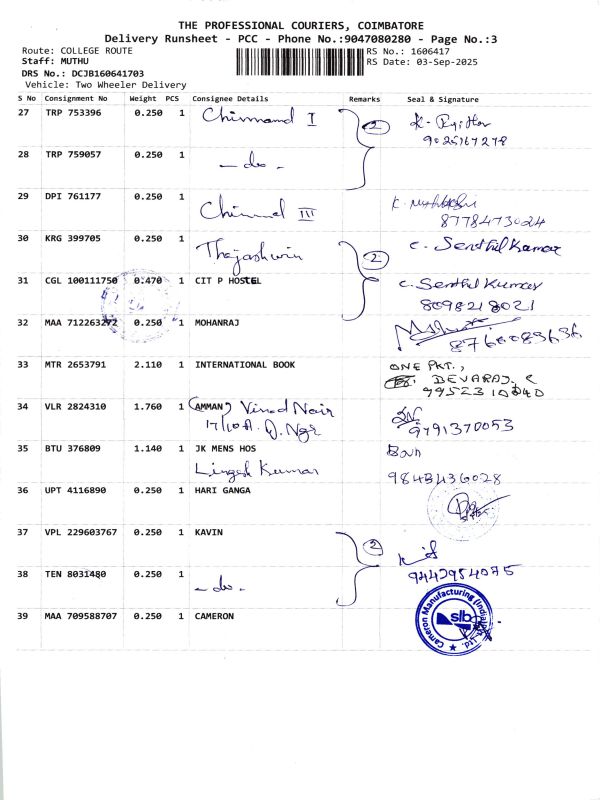 THE PROFESSIONAL COURIERS, COIMBATORE
Delivery Runsheet - PCC - Phone No.:9047080280 - Page No.:3
Route: COLLEGE ROUTE RS No.: 1606417
Staff: MUTHU RS Date: 03-Sep-2025
DRS No.: DCJB160641703
Vehicle: Two Wheeler Delivery
S No Consignment No Weight PCS Consignee Details Remarks Seal & Signature
27 TRP 753396 0.250 1 I 2
28 TRP 759057 0.250 1 - do -
29 DPI 761177 0.250 1 III
8778473024
30 KRG 399705 0.250 1 Thejashwin 2 C. Senthil Kumar
31 CGL 100111750 0.470 1 CIT P HOSTEL C. Senthil Kumar
8098218021
32 MAA 712263272 0.250 1 MOHANRAJ
33 MTR 2653791 2.110 1 INTERNATIONAL BOOK ONE PKT.,
DEVARAJ. C
34 VLR 2824310 1.760 1 AMMAN Vinod Nair
9791370053
35 BTU 376809 1.140 1 JK MENS HOS
Lingesh Kumar 9843436028
36 UPT 4116890 0.250 1 HARI GANGA
37 VPL 229603767 0.250 1 KAVIN 2
38 TEN 8031480 0.250 1 - do - 9442954075
39 MAA 709588707 0.250 1 CAMERON Cameron Manufacturing (India) slb